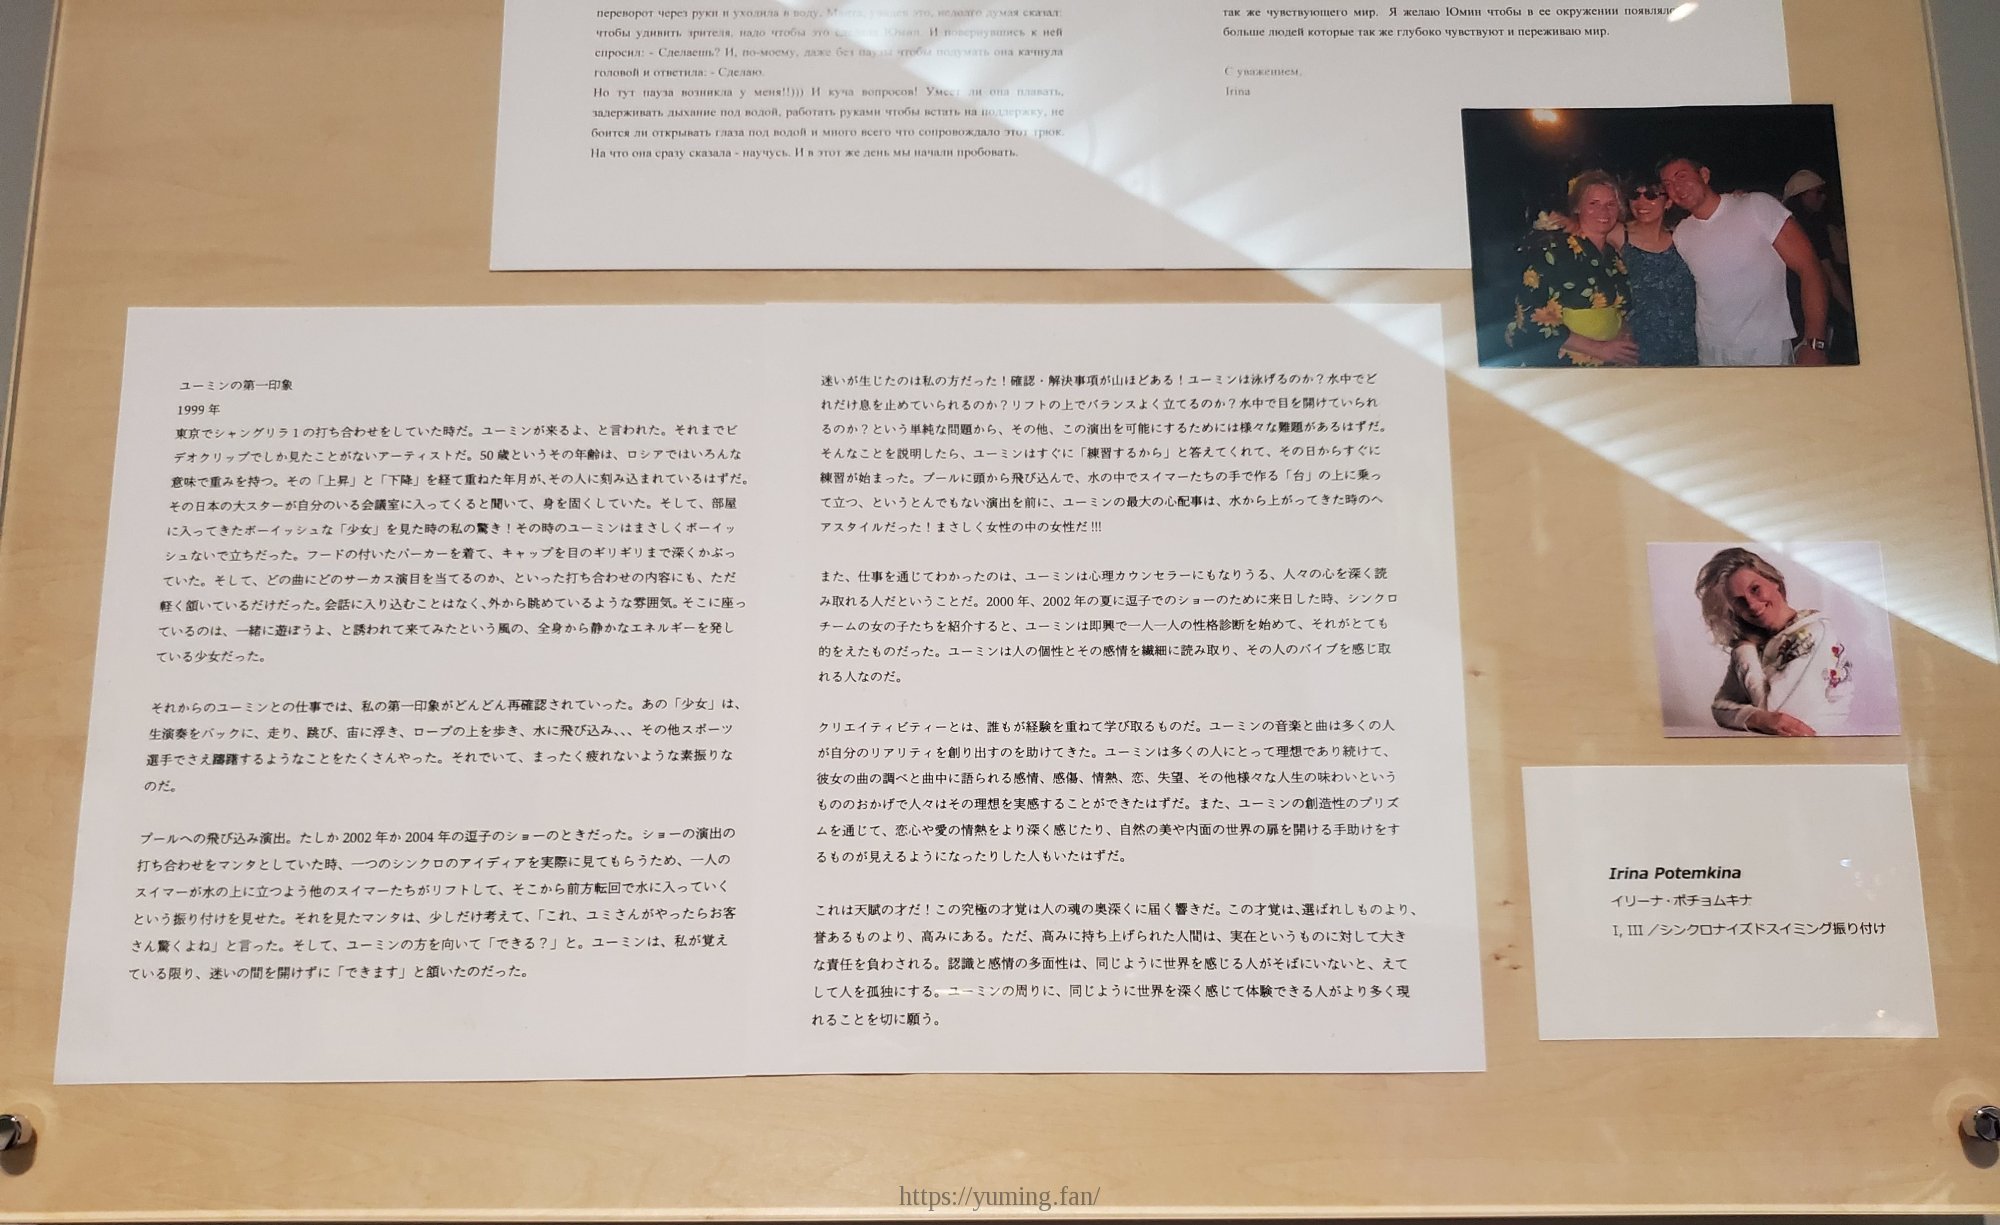 переворот через руки и уходила в воду. Манта, увидев это, недолго думая сказал:
чтобы удивить зрителя, надо чтобы это сделала Юмин. И повернувшись к ней
спросил: - Сделаешь? И, по-моему, даже без паузы чтобы подумать она качнула
головой и ответила: - Сделаю.
Но тут пауза возникла у меня!!))) И куча вопросов! Умеет ли она плавать,
задерживать дыхание под водой, работать руками чтобы встать на поддержку, не
боится ли открывать глаза под водой и много всего что сопровождало этот трюк.
На что она сразу сказала - научусь. И в этот же день мы начали пробовать.
так же чувствующего мир. Я желаю Юмин чтобы в ее окружении
больше людей которые так же глубоко чувствуют и переживаю мир.
С уважением,
Irina
ユーミンの第一印象
1999 年
東京でシャングリラ 1 の打ち合わせをしていた時だ。ユーミンが来るよ、と言われた。それまでビ
デオクリップでしか見たことがないアーティストだ。50 歳というその年齢は、ロシアではいろんな
意味で重みを持つ。その「上昇」と「下降」を経て重ねた年月が、その人に刻み込まれているはずだ。
その日本の大スターが自分のいる会議室に入ってくると聞いて、身を固くしていた。そして、部屋
に入ってきたボーイッシュな「少女」を見た時の私の驚き！その時のユーミンはまさしくボーイッ
シュないで立ちだった。フードの付いたパーカーを着て、キャップを目のギリギリまで深くかぶっ
ていた。そして、どの曲にどのサーカス演目を当てるのか、といった打ち合わせの内容にも、ただ
軽く頷いているだけだった。会話に入り込むことはなく、外から眺めているような雰囲気。そこに座っ
ているのは、一緒に遊ぼうよ、と誘われて来てみたという風の、全身から静かなエネルギーを発し
ている少女だった。
それからのユーミンとの仕事では、私の第一印象がどんどん再確認されていった。あの「少女」は、
生演奏をバックに、走り、跳び、宙に浮き、ロープの上を歩き、水に飛び込み、、、その他スポーツ
選手でさえ躊躇するようなことをたくさんやった。それでいて、まったく疲れないような素振りな
のだ。
プールへの飛び込み演出。たしか 2002 年か 2004 年の逗子のショーのときだった。ショーの演出の
打ち合わせをマンタとしていた時、一つのシンクロのアイディアを実際に見てもらうため、一人の
スイマーが水の上に立つよう他のスイマーたちがリフトして、そこから前方転回で水に入っていく
という振り付けを見せた。それを見たマンタは、少しだけ考えて、「これ、ユミさんがやったらお客
さん驚くよね」と言った。そして、ユーミンの方を向いて「できる？」と。ユーミンは、私が覚え
ている限り、迷いの間を開けずに「できます」と頷いたのだった。
迷いが生じたのは私の方だった！確認・解決事項が山ほどある！ユーミンは泳げるのか？水中でど
れだけ息を止めていられるのか？リフトの上でバランスよく立てるのか？水中で目を開けていられ
るのか？という単純な問題から、その他、この演出を可能にするためには様々な難題があるはずだ。
そんなことを説明したら、ユーミンはすぐに「練習するから」と答えてくれて、その日からすぐに
練習が始まった。プールに頭から飛び込んで、水の中でスイマーたちの手で作る「台」の上に乗っ
て立つ、というとんでもない演出を前に、ユーミンの最大の心配事は、水から上がってきた時のヘ
アスタイルだった！まさしく女性の中の女性だ !!!
また、仕事を通じてわかったのは、ユーミンは心理カウンセラーにもなりうる、人々の心を深く読
み取れる人だということだ。2000 年、2002 年の夏に逗子でのショーのために来日した時、シンクロ
チームの女の子たちを紹介すると、ユーミンは即興で一人一人の性格診断を始めて、それがとても
的をえたものだった。ユーミンは人の個性とその感情を繊細に読み取り、その人のバイブを感じ取
れる人なのだ。
クリエイティビティーとは、誰もが経験を重ねて学び取るものだ。ユーミンの音楽と曲は多くの人
が自分のリアリティを創り出すのを助けてきた。ユーミンは多くの人にとって理想であり続けて、
彼女の曲の調べと曲中に語られる感情、感傷、情熱、恋、失望、その他様々な人生の味わいという
もののおかげで人々はその理想を実感することができたはずだ。また、ユーミンの創造性のプリズ
ムを通じて、恋心や愛の情熱をより深く感じたり、自然の美や内面の世界の扉を開ける手助けをす
るものが見えるようになったりした人もいたはずだ。
これは天賦の才だ！この究極の才覚は人の魂の奥深くに届く響きだ。この才覚は、選ばれしものより、
誉あるものより、高みにある。ただ、高みに持ち上げられた人間は、実在というものに対して大き
な責任を負わされる。認識と感情の多面性は、同じように世界を感じる人がそばにいないと、えて
して人を孤独にする。ユーミンの周りに、同じように世界を深く感じて体験できる人がより多く現
れることを切に願う。
Irina Potemkina
イリーナ・ポチョムキナ
I, III ／シンクロナイズドスイミング振り付け
https://yuming.fan/